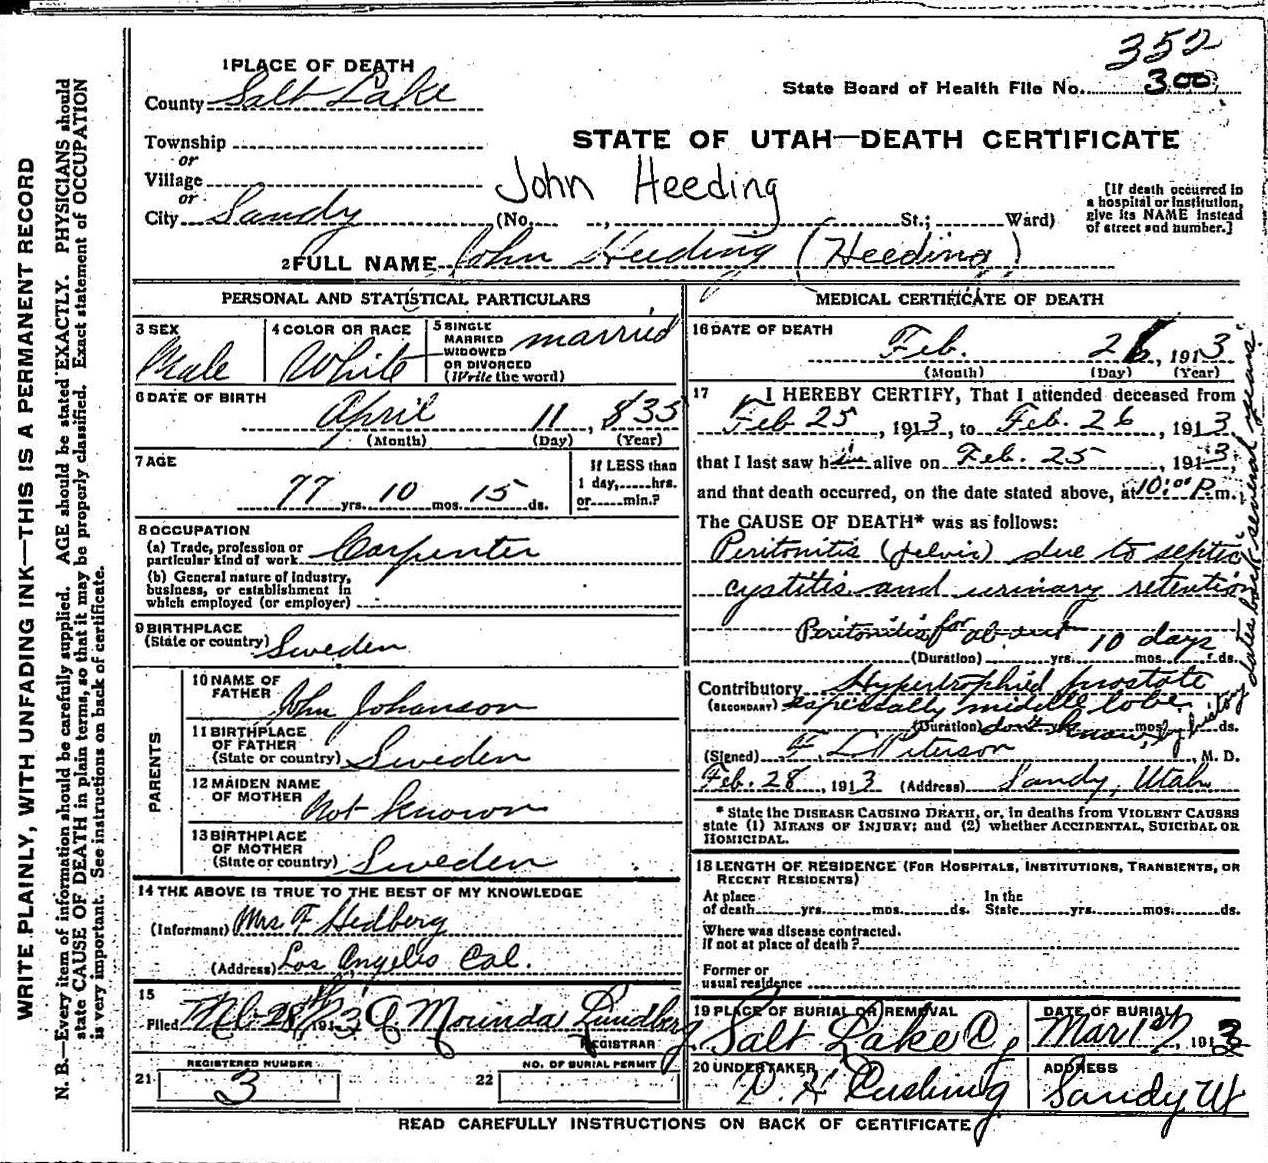 352
State Board of Health File No. 300
1 PLACE OF DEATH
County Salt Lake
STATE OF UTAH—DEATH CERTIFICATE
Township
or
Village
or
City Sandy (No. , St.; Ward)
John Heeding
[If death occurred in a hospital or institution, give its NAME instead of street and number.]
2 FULL NAME John Heeding (Heeding)
PERSONAL AND STATISTICAL PARTICULARS
3 SEX
Male
4 COLOR OR RACE
White
5 SINGLE MARRIED WIDOWED OR DIVORCED (Write the word)
married
6 DATE OF BIRTH
April 11, 835
(Month) (Day) (Year)
7 AGE
77 yrs. 10 mos. 15 ds.
If LESS than 1 day, hrs. or min.?
8 OCCUPATION
(a) Trade, profession or particular kind of work Carpenter
(b) General nature of industry, business, or establishment in which employed (or employer)
9 BIRTHPLACE
(State or country) Sweden
PARENTS
10 NAME OF FATHER John Johanson
11 BIRTHPLACE OF FATHER (State or country) Sweden
12 MAIDEN NAME OF MOTHER Not known
13 BIRTHPLACE OF MOTHER (State or country) Sweden
14 THE ABOVE IS TRUE TO THE BEST OF MY KNOWLEDGE
(Informant) Mrs F Hedberg
(Address) Los Angelis Cal.
15
Filed 28th 1913 Morinda Lundberg
REGISTRAR
REGISTERED NUMBER
21 3
NO. OF BURIAL PERMIT
22
MEDICAL CERTIFICATE OF DEATH
16 DATE OF DEATH
Feb. 26, 1913
(Month) (Day) (Year)
17 I HEREBY CERTIFY, That I attended deceased from
Feb 25, 1913, to Feb. 26, 1913,
that I last saw him alive on Feb. 25, 1913,
and that death occurred, on the date stated above, at 10:00 P.m.
The CAUSE OF DEATH* was as follows:
Peritonitis (pelvic) due to septic
cystitis and urinary retention
Peritonitis for about 10 days
(Duration) yrs. mos. ds.
Contributory Hypertrophied prostate
(SECONDARY) especially middle lobe.
(Duration) don't know, by history dates back several years.
yrs. mos. ds.
(Signed) F. L. Peterson, M. D.
Feb. 28, 1913 (Address) Sandy, Utah
* State the DISEASE CAUSING DEATH, or, in deaths from VIOLENT CAUSES
state (1) MEANS OF INJURY; and (2) whether ACCIDENTAL, SUICIDAL OR
HOMICIDAL.
18 LENGTH OF RESIDENCE (FOR HOSPITALS, INSTITUTIONS, TRANSIENTS, OR
RECENT RESIDENTS)
At place of death yrs. mos. ds. In the State yrs. mos. ds.
Where was disease contracted.
if not at place of death?
Former or
usual residence
19 PLACE OF BURIAL OR REMOVAL
Salt Lake
DATE OF BURIAL
Mar 1st, 1913
20 UNDERTAKER
ADDRESS
Sandy Ut
READ CAREFULLY INSTRUCTIONS ON BACK OF CERTIFICATE
WRITE PLAINLY, WITH UNFADING INK—THIS IS A PERMANENT RECORD
N. B.—Every item of information should be carefully supplied. AGE should be stated EXACTLY. PHYSICIANS should
state CAUSE OF DEATH in plain terms, so that it may be properly classified. Exact statement of OCCUPATION
is very important. See instructions on back of certificate.